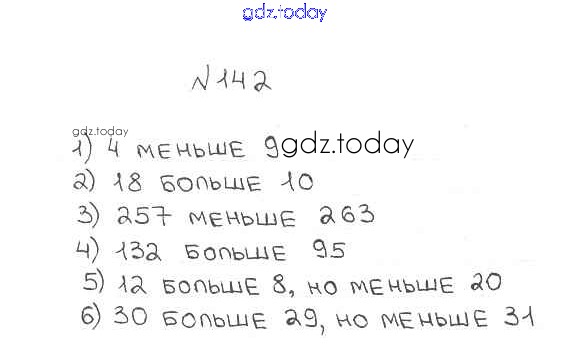 gdz.today
№142
gdz.today
1) 4 меньше 9 gdz.today
2) 18 больше 10
3) 257 меньше 263
4) 132 больше 95
5) 12 больше 8, но меньше 20
6) 30 больше 29, но меньше 31